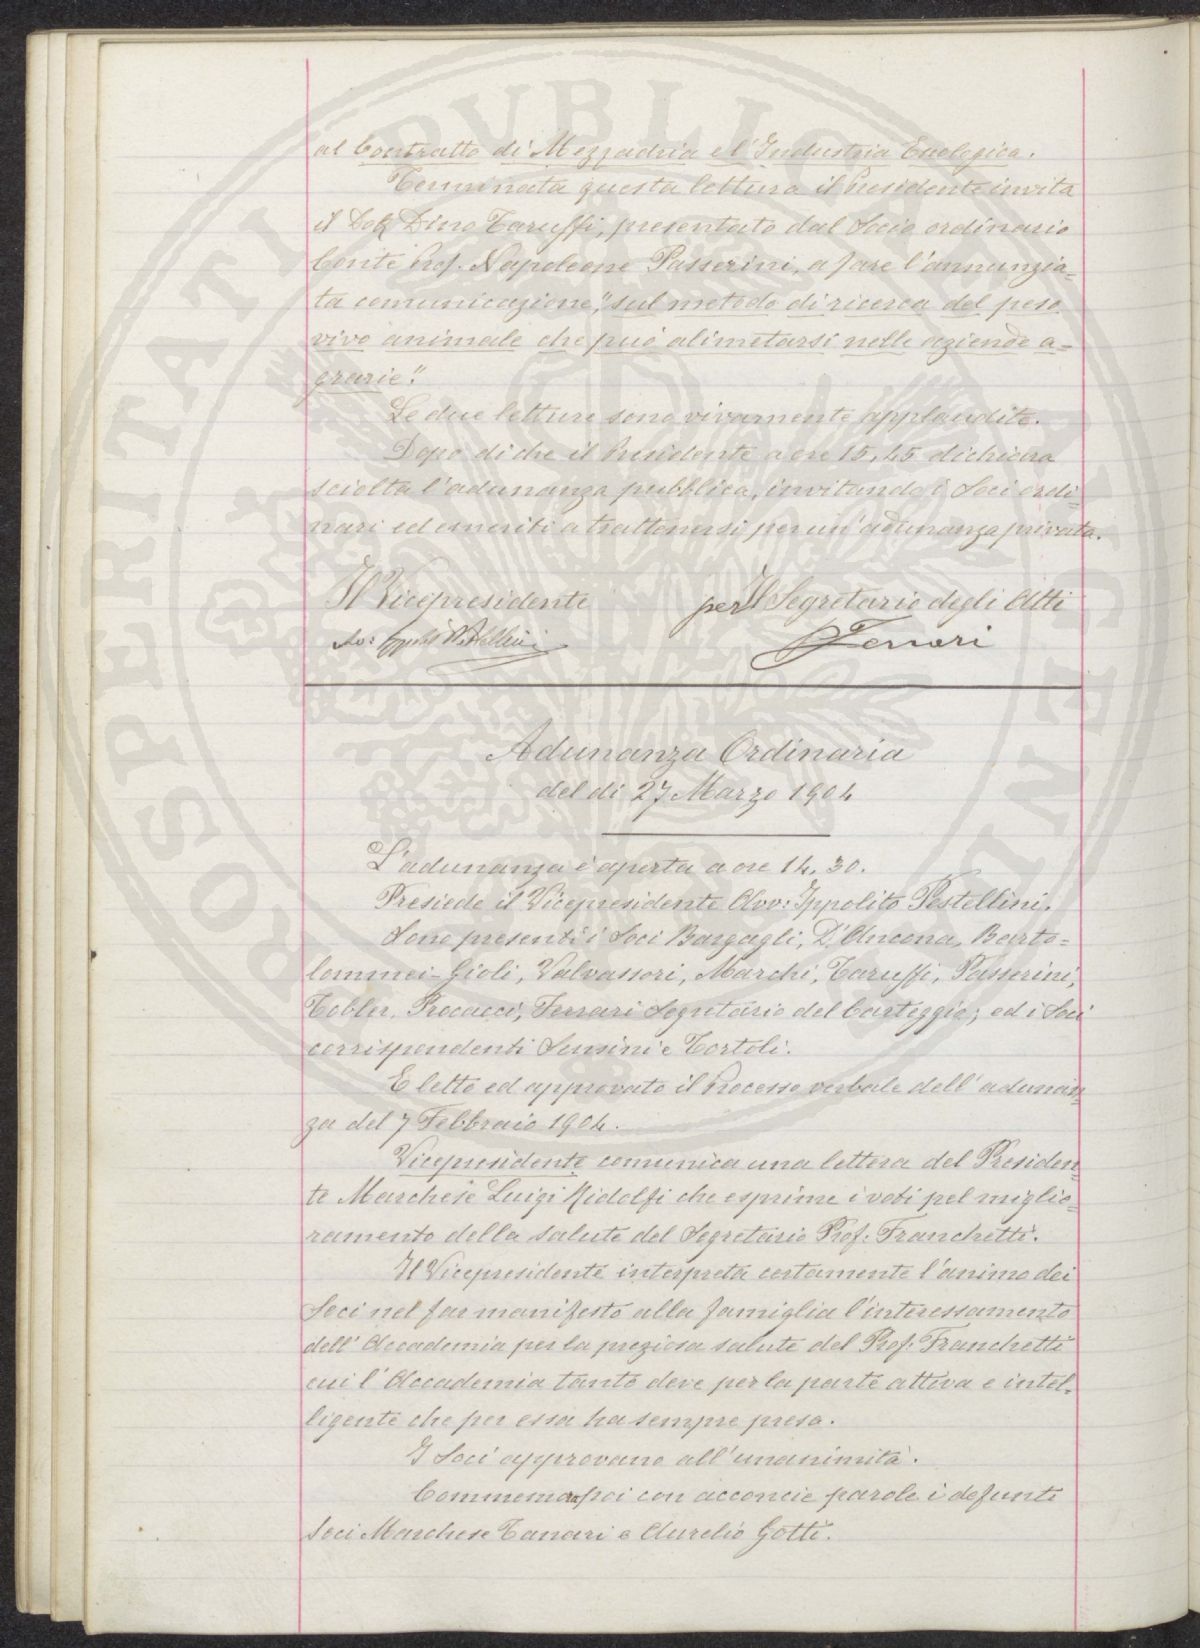 al Contratto di Mezzadria e l'Industria Enologica.
Terminata questa lettura il Presidente invita
il Dott Dino Taruffi, presentato dal Socio ordinario
Conte Prof. Napoleone Passerini, a fare l'annunzia=
ta comunicazione "sul metodo di ricerca del peso
vivo animale che può alimetarsi nelle aziende a=
grarie".
Le due letture sono vivamente applaudite.
Dopo di che il Presidente a ore 15,45 dichiara
sciolta l'adunanza pubblica, invitando i Soci ordi=
nari ed emeriti a trattenersi per un'adunanza privata.
Il Vicepresidente per Il Segretario degli Atti
Avv: Ippolito Pestellini Ferrari
Adunanza Ordinaria
del dì 27 Marzo 1904
L'adunanza è aperta a ore 14,30.
Presiede il Vicepresidente Avv: Ippolito Pestellini.
Sono presenti i Soci Bargagli, D'Ancona, Barto=
lommei-Gioli, Valvassori, Marchi, Taruffi, Passerini,
Tobler, Procacci, Ferrari Segretario del Carteggio; ed i Soci
corrispondenti Sensini e Tortoli.
E letto ed approvato il Processo verbale dell'adunan=
za del 7 Febbraio 1904.
Vicepresidente comunica una lettera del Presiden=
te Marchese Luigi Ridolfi che esprime i voti pel miglio=
ramento della salute del Segretario Prof. Franchetti.
Il Vicepresidente interpreta certamente l'animo dei
Soci nel far manifesto alla famiglia l'interessamento
dell'Accademia per la preziosa salute del Prof. Franchetti
cui l'Accademia tanto deve per la parte attiva e intel=
ligente che per essa ha sempre presa.
I Soci approvano all'unanimità.
Commemora poi con acconcie parole i defunti
Soci Marchese Tanari e Aurelio Gotti.
PROSPERITATI PVBLICAE AVGENDAE